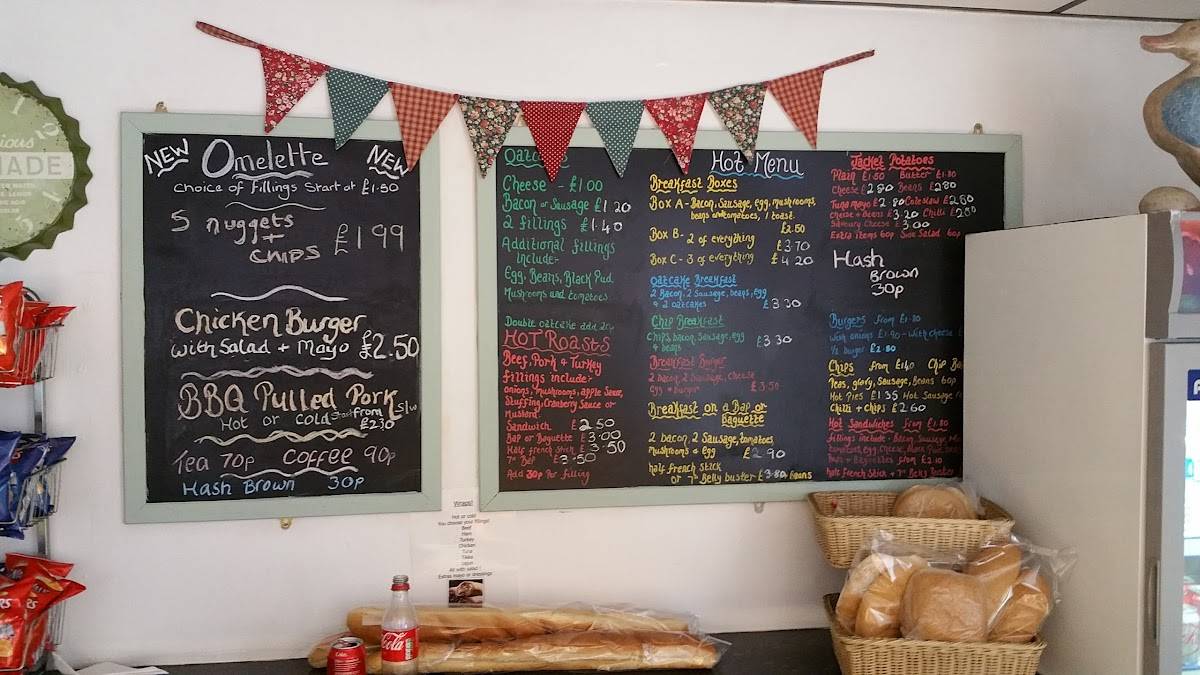 MADE
NEW Omelette NEW
Choice of Fillings Start at £1.50
5 nuggets
+
CHIPS
£1 99
Chicken Burger
with Salad + Mayo £2.50
BBQ Pulled Pork
Hot or Cold Start from
£2.30
Tea 70p Coffee 90p
Hash Brown 30p
Oatcake
Cheese - £1.00
Bacon or Sausage £1.20
2 fillings £1.40
Additional fillings
include:-
Egg, Beans, Black Pud
Mushrooms and tomatoes
Double oatcake add 20p
HOT Roasts
Beef, Pork & Turkey
fillings include:-
onions, mushrooms, apple sauce,
Stuffing, Cranberry Sauce or
Mustard.
Sandwich £2.50
Bap or Baguette £3.00
Half french Stick £3.50
7" Bap £3.50
Add 30p Per filling
Hot Menu
Breakfast Boxes
Box A - Bacon, Sausage, egg, mushrooms,
beans and tomatoes, 1 toast.
£2.50
Box B - 2 of everything
£3.70
Box C - 3 of everything £4.20
Oatcake Breakfast
2 Bacon, 2 Sausage, beans, egg
& 2 oatcakes £3.30
Chip Breakfast
Chips, bacon, Sausage, egg
& beans £3.30
Breakfast Burger
2 bacon, 2 Sausage, Cheese
egg + burger £3.50
Breakfast on a Bap or
Baguette
2 bacon, 2 Sausage, tomatoes,
mushrooms & egg £2.90
half french Stick
or 7" Belly buster £3.80 Beans
Jacket Potatoes
Plain £1.50 Butter £1.80
Cheese £2.80 Beans £2.80
Tuna mayo £2.80 Coleslaw £2.80
Cheese + Beans £3.20 Chilli £2.80
Savoury Cheese £3.00
Extra items 60p Side Salad 60p
Hash
Brown
30p
Burgers from £1.80
With onions £1.90 - With cheese £
1/2 burger £2.80
Chips from £1.40 Chip Ba
Peas, gravy, Sausage, Beans 60p
Hot Pies £1.35 Hot Sausage
Chilli + Chips £2.60
Hot Sandwiches from £1.80
fillings include - Bacon, Sausage,
half french Stick + 7" Belly Buster
Wraps!
Hot or cold
You choose your fillings!
Beef
Ham
Turkey
Chicken
Tuna
Tikka
Cajun
All with salad!
Extras mayo or dressings
Coca-Cola